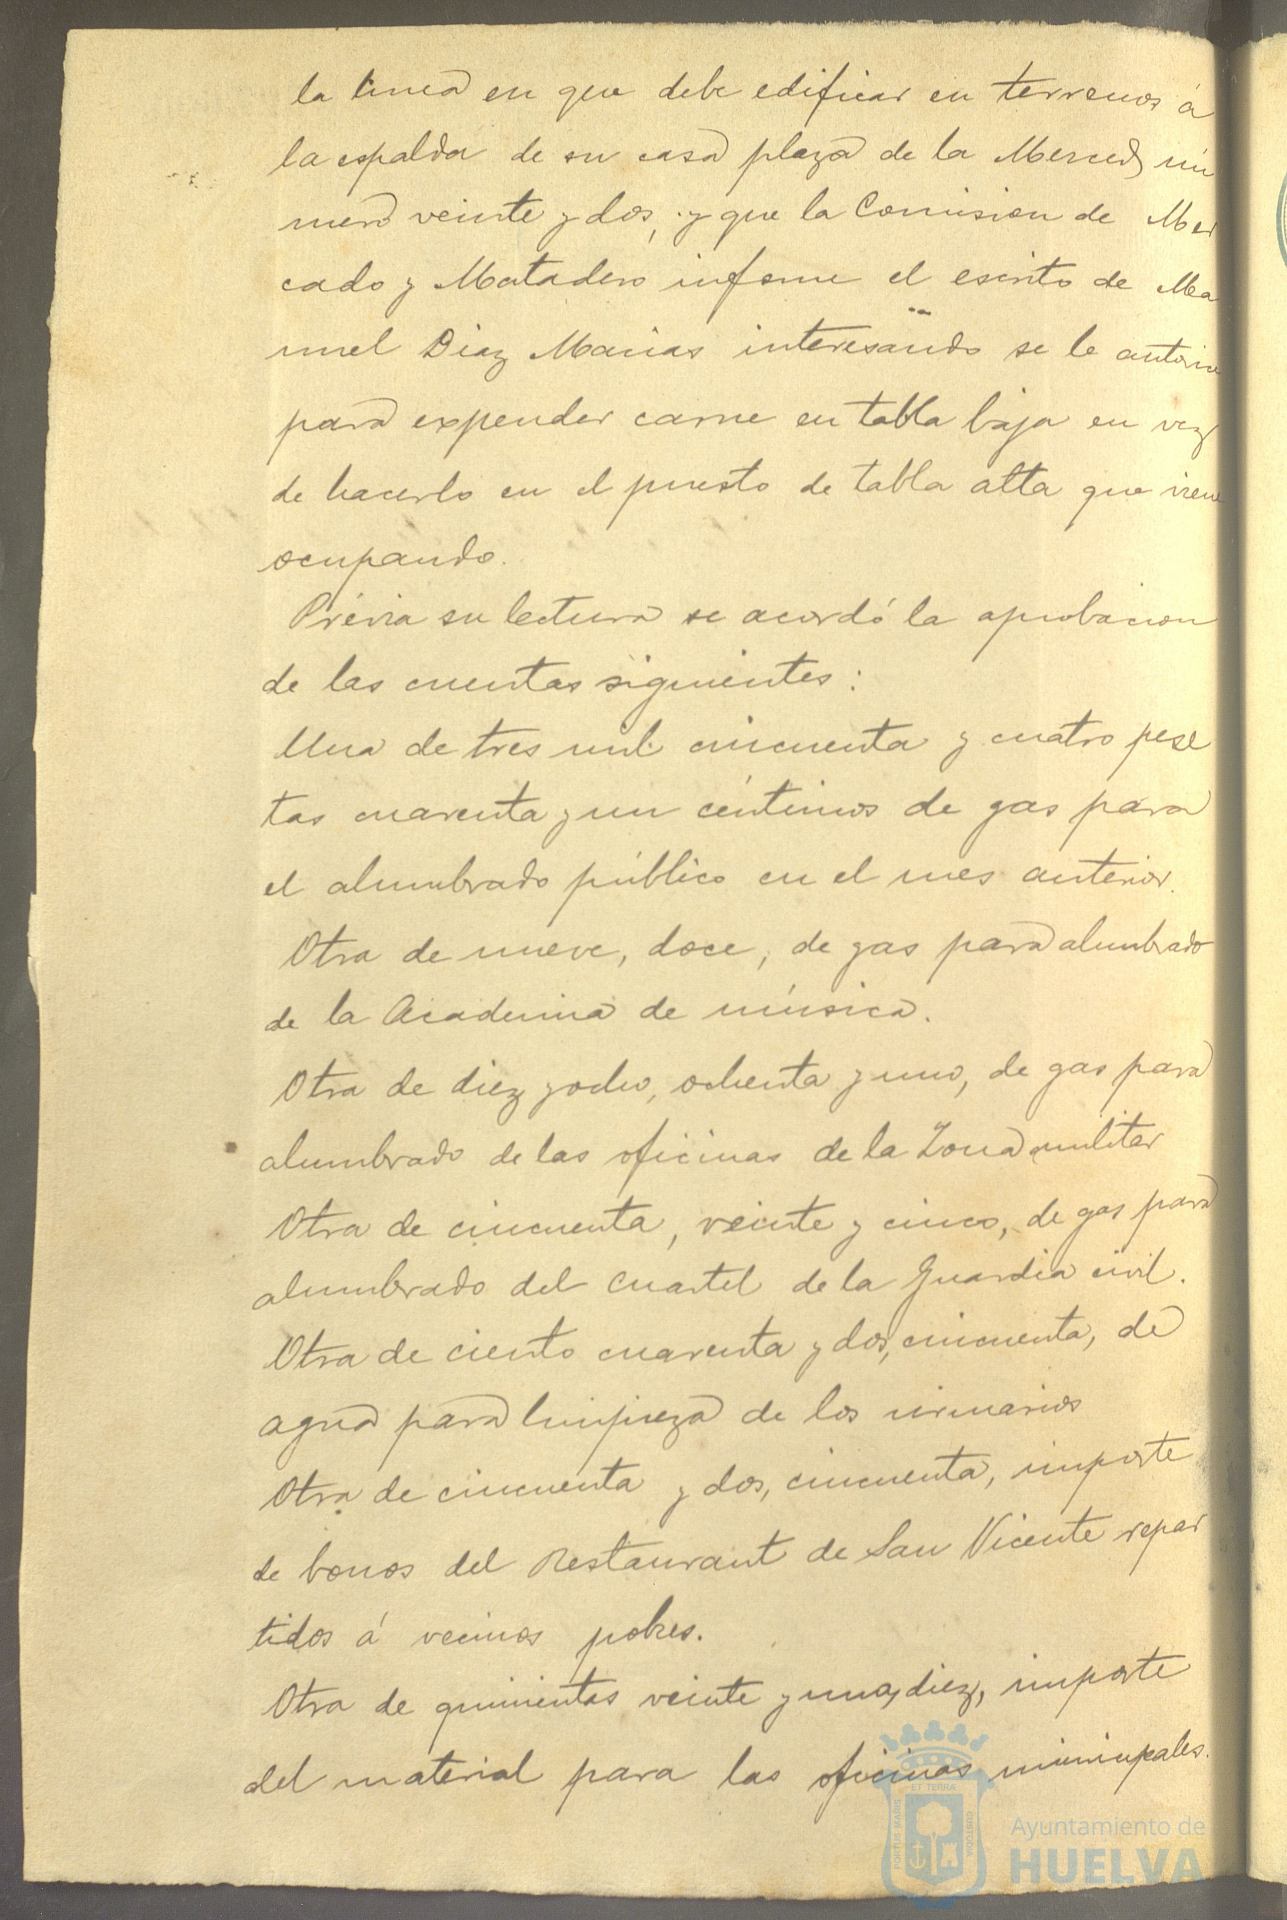 la linea en que debe edificar en terrenos á
la espalda de su casa plaza de la Merced nú
mero veinte y dos, y que la Comision de Mer
cado y Matadero informe el escrito de Ma
nuel Diaz Macias interesando se le autorice
para expender carne en tabla baja en vez
de hacerlo en el puesto de tabla alta que viene
ocupando.
Prévia su lectura se acordó la aprobacion
de las cuentas siguientes:
Una de tres mil cincuenta y cuatro pese
tas cuarenta y un céntimos de gas para
el alumbrado público en el mes anterior.
Otra de nueve, doce, de gas para alumbrado
de la Academia de música.
Otra de diez y ocho, ochenta y uno, de gas para
alumbrado de las oficinas de la Zona militar
Otra de cincuenta, veinte y cinco, de gas para
alumbrado del cuartel de la Guardia civil.
Otra de ciento cuarenta y dos, cincuenta, de
agua para limpieza de los urinarios
Otra de cincuenta y dos, cincuenta, importe
de bonos del Restaurant de San Vicente repar
tidos á vecinos pobres.
Otra de quinientas veinte y una, diez, importe
del material para las oficinas municipales.
ET TERRÆ
PORTUS MARIS
CUSTODIA
Ayuntamiento de
HUELVA